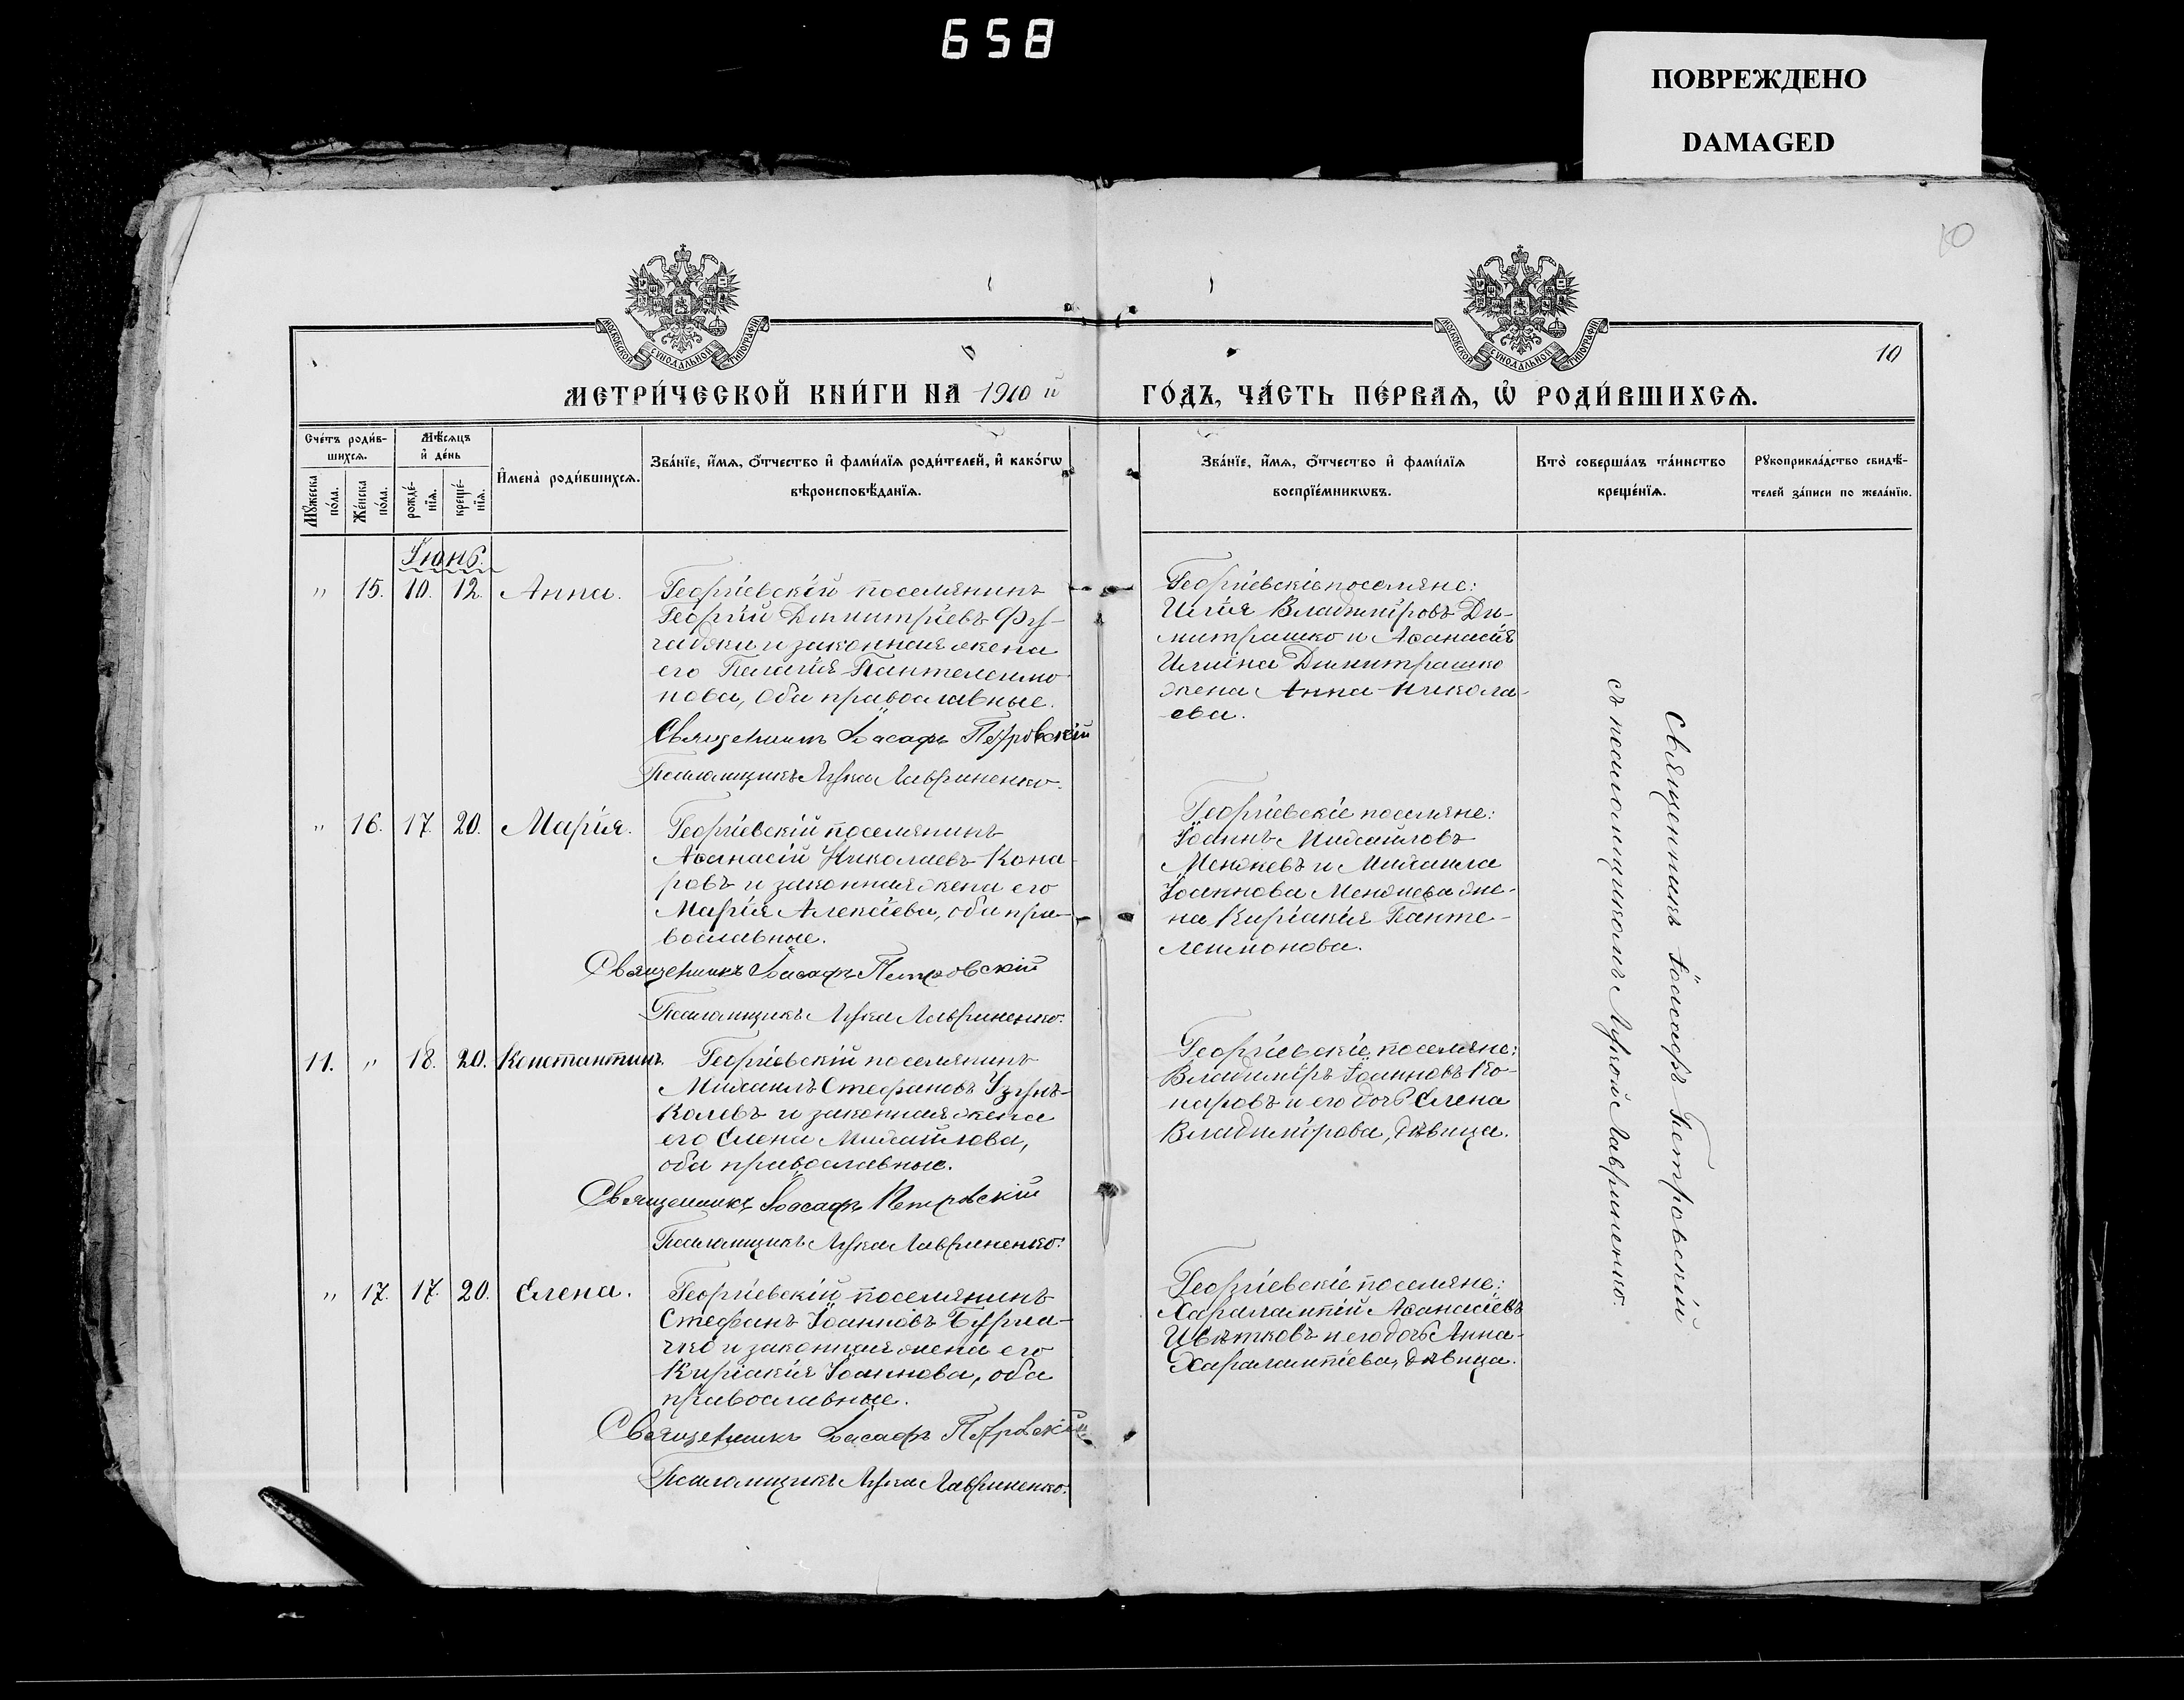 658
ПОВРЕЖДЕНО
DAMAGED
10
МОСКОВСКОЙ СѴНОДАЛЬНОЙ ТИПОГРАФІИ
МОСКОВСКОЙ СѴНОДАЛЬНОЙ ТИПОГРАФІИ
10
МЕТРИ́ЧЕСКОЙ КНИ́ГИ НА 1910 й
ГО́ДЪ, ЧА́СТЬ ПЕ́РВАѦ, Ѡ҆ РОДИ́ВШИХСѦ.
Сче́тъ роди́в-
шихсѧ.
Мѣ́сѧцъ
и҆ де́нь
Мꙋ́жеска
по́ла.
Же́нска
по́ла.
рожде́-
нїѧ.
креще́-
нїѧ.
И҆мена̀ роди́вшихсѧ.
Зва́нїе, и҆́мѧ, ѻ҆́тчество и҆ фами́лїѧ роди́телей, и҆ како́гѡ
вѣроисповѣ́данїѧ.
Зва́нїе, и҆́мѧ, ѻ҆́тчество и҆ фами́лїѧ
воспрїе́мникѡвъ.
Кто̀ соверша́лъ та́инство
креще́нїѧ.
Рꙋкоприкла́дство свидѣ́-
телей за́писи по жела́нїю.
Іюнь.
" 15. 10. 12. Анна.
Георгіевскій поселянинъ
Георгій Димитріевъ Фу-
чаджи и законная жена
его Пелагія Пантелеимо-
нова, оба православные.
Священникъ Іоасафъ Петровскій
Псаломщикъ Лука Лавриненко.
Георгіевскіе поселяне:
Илія Владиміровъ Ди-
митрашко и Аѳанасія
Иліина Димитрашко
жена Анна Никола-
ева.
" 16. 17. 20. Марія.
Георгіевскій поселянинъ
Аѳанасій Николаевъ Кона-
ровъ и законная жена его
Марія Алексіева, оба пра-
вославные.
Священникъ Іоасафъ Петровскій
Псаломщикъ Лука Лавриненко.
Георгіевскіе поселяне:
Іоаннъ Михайловъ
Менжевъ и Михаила
Іоаннова Менжева же-
на Киріакія Панте-
леимонова.
11. " 18. 20. Константинъ.
Георгіевскій поселянинъ
Михаилъ Стефановъ Узунъ-
Колевъ и законная жена
его Елена Михайлова,
оба православные.
Священникъ Іоасафъ Петровскій
Псаломщикъ Лука Лавриненко.
Георгіевскіе поселяне:
Владиміръ Іоанновъ Ко-
наровъ и его дочь Елена
Владимірова, дѣвица.
" 17. 17. 20. Елена.
Георгіевскій поселянинъ
Стефанъ Іоанновъ Бурла-
чко и законная жена его
Киріакія Іоаннова, оба
православные.
Священникъ Іоасафъ Петровскій
Псаломщикъ Лука Лавриненко.
Георгіевскіе поселяне:
Харалампій Аѳанасіевъ
Цвѣтковъ и его дочь Анна
Харалампіева, дѣвица.
Священникъ Іоасафъ Петровскій
съ псаломщикомъ Лукой Лавриненко.